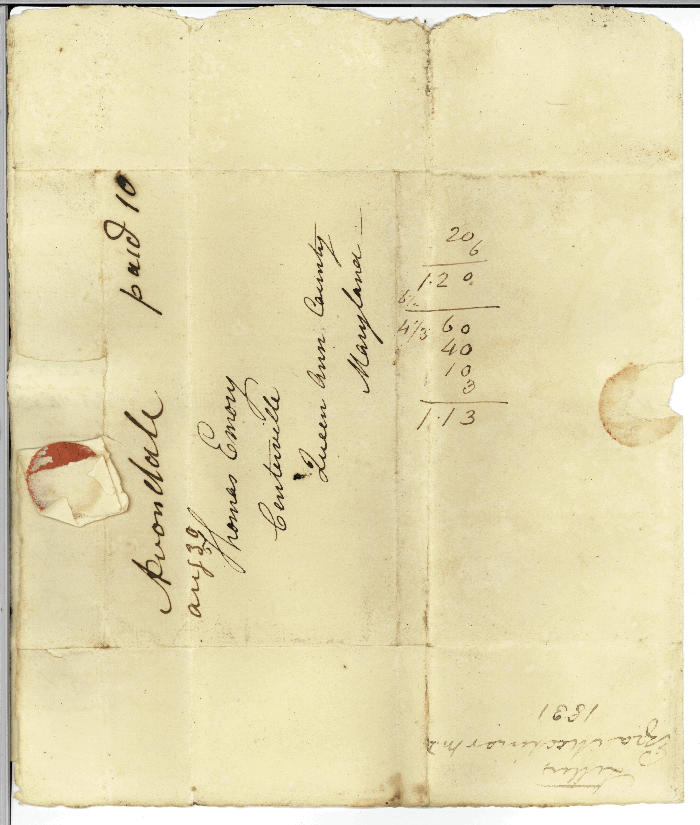 Avondale paid 10
aug 30
Thomas Emory
Centerville
Queen Ann County
Maryland
20
6
1.20
6/-
4/3 60
40
10
3
1.13
Letter
1831